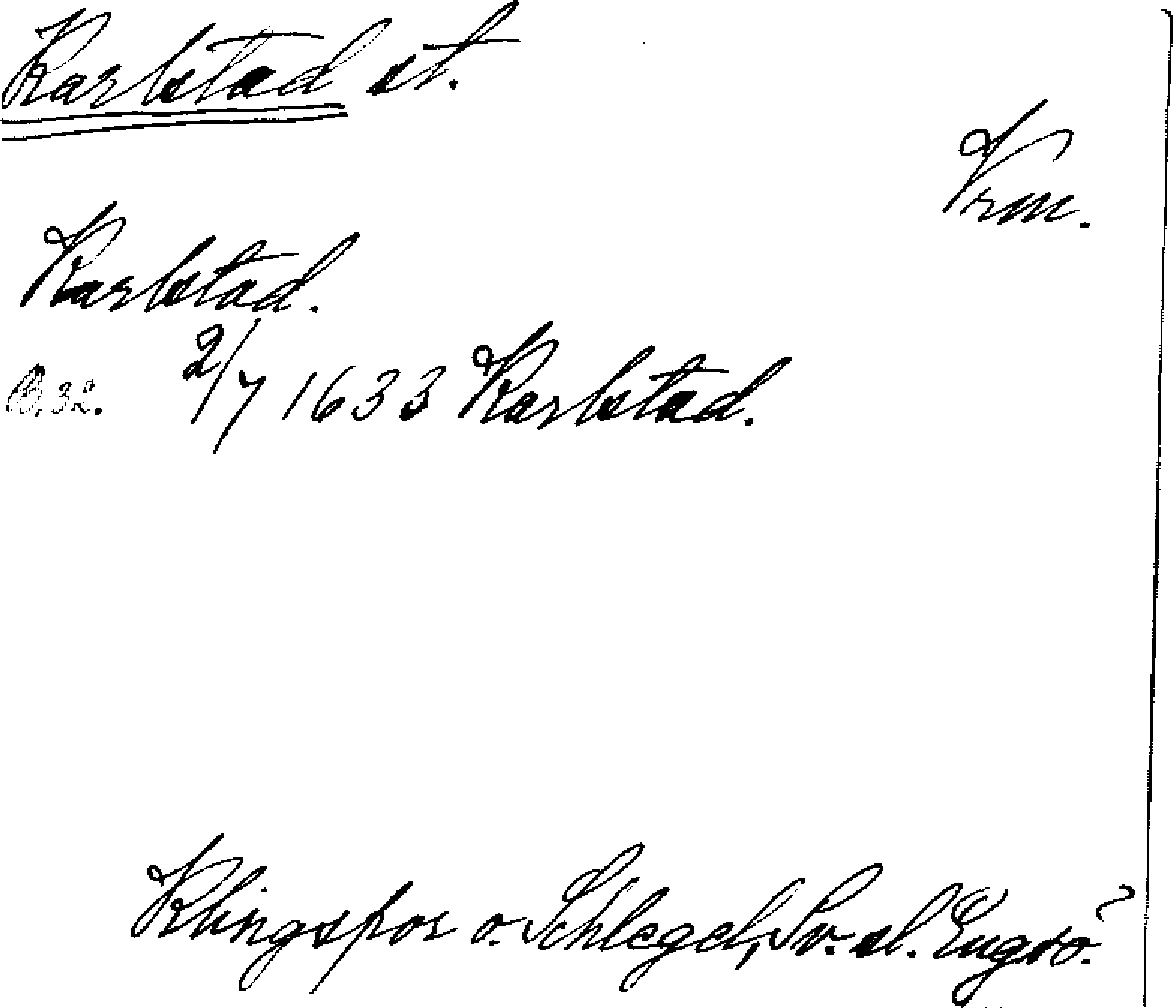 Karlstad st.
Vrm.
Karlstad.
B. 32. 2/7 1633 Karlstad.
Klingspor o. Schlegel, Sv. sl. Engsö.